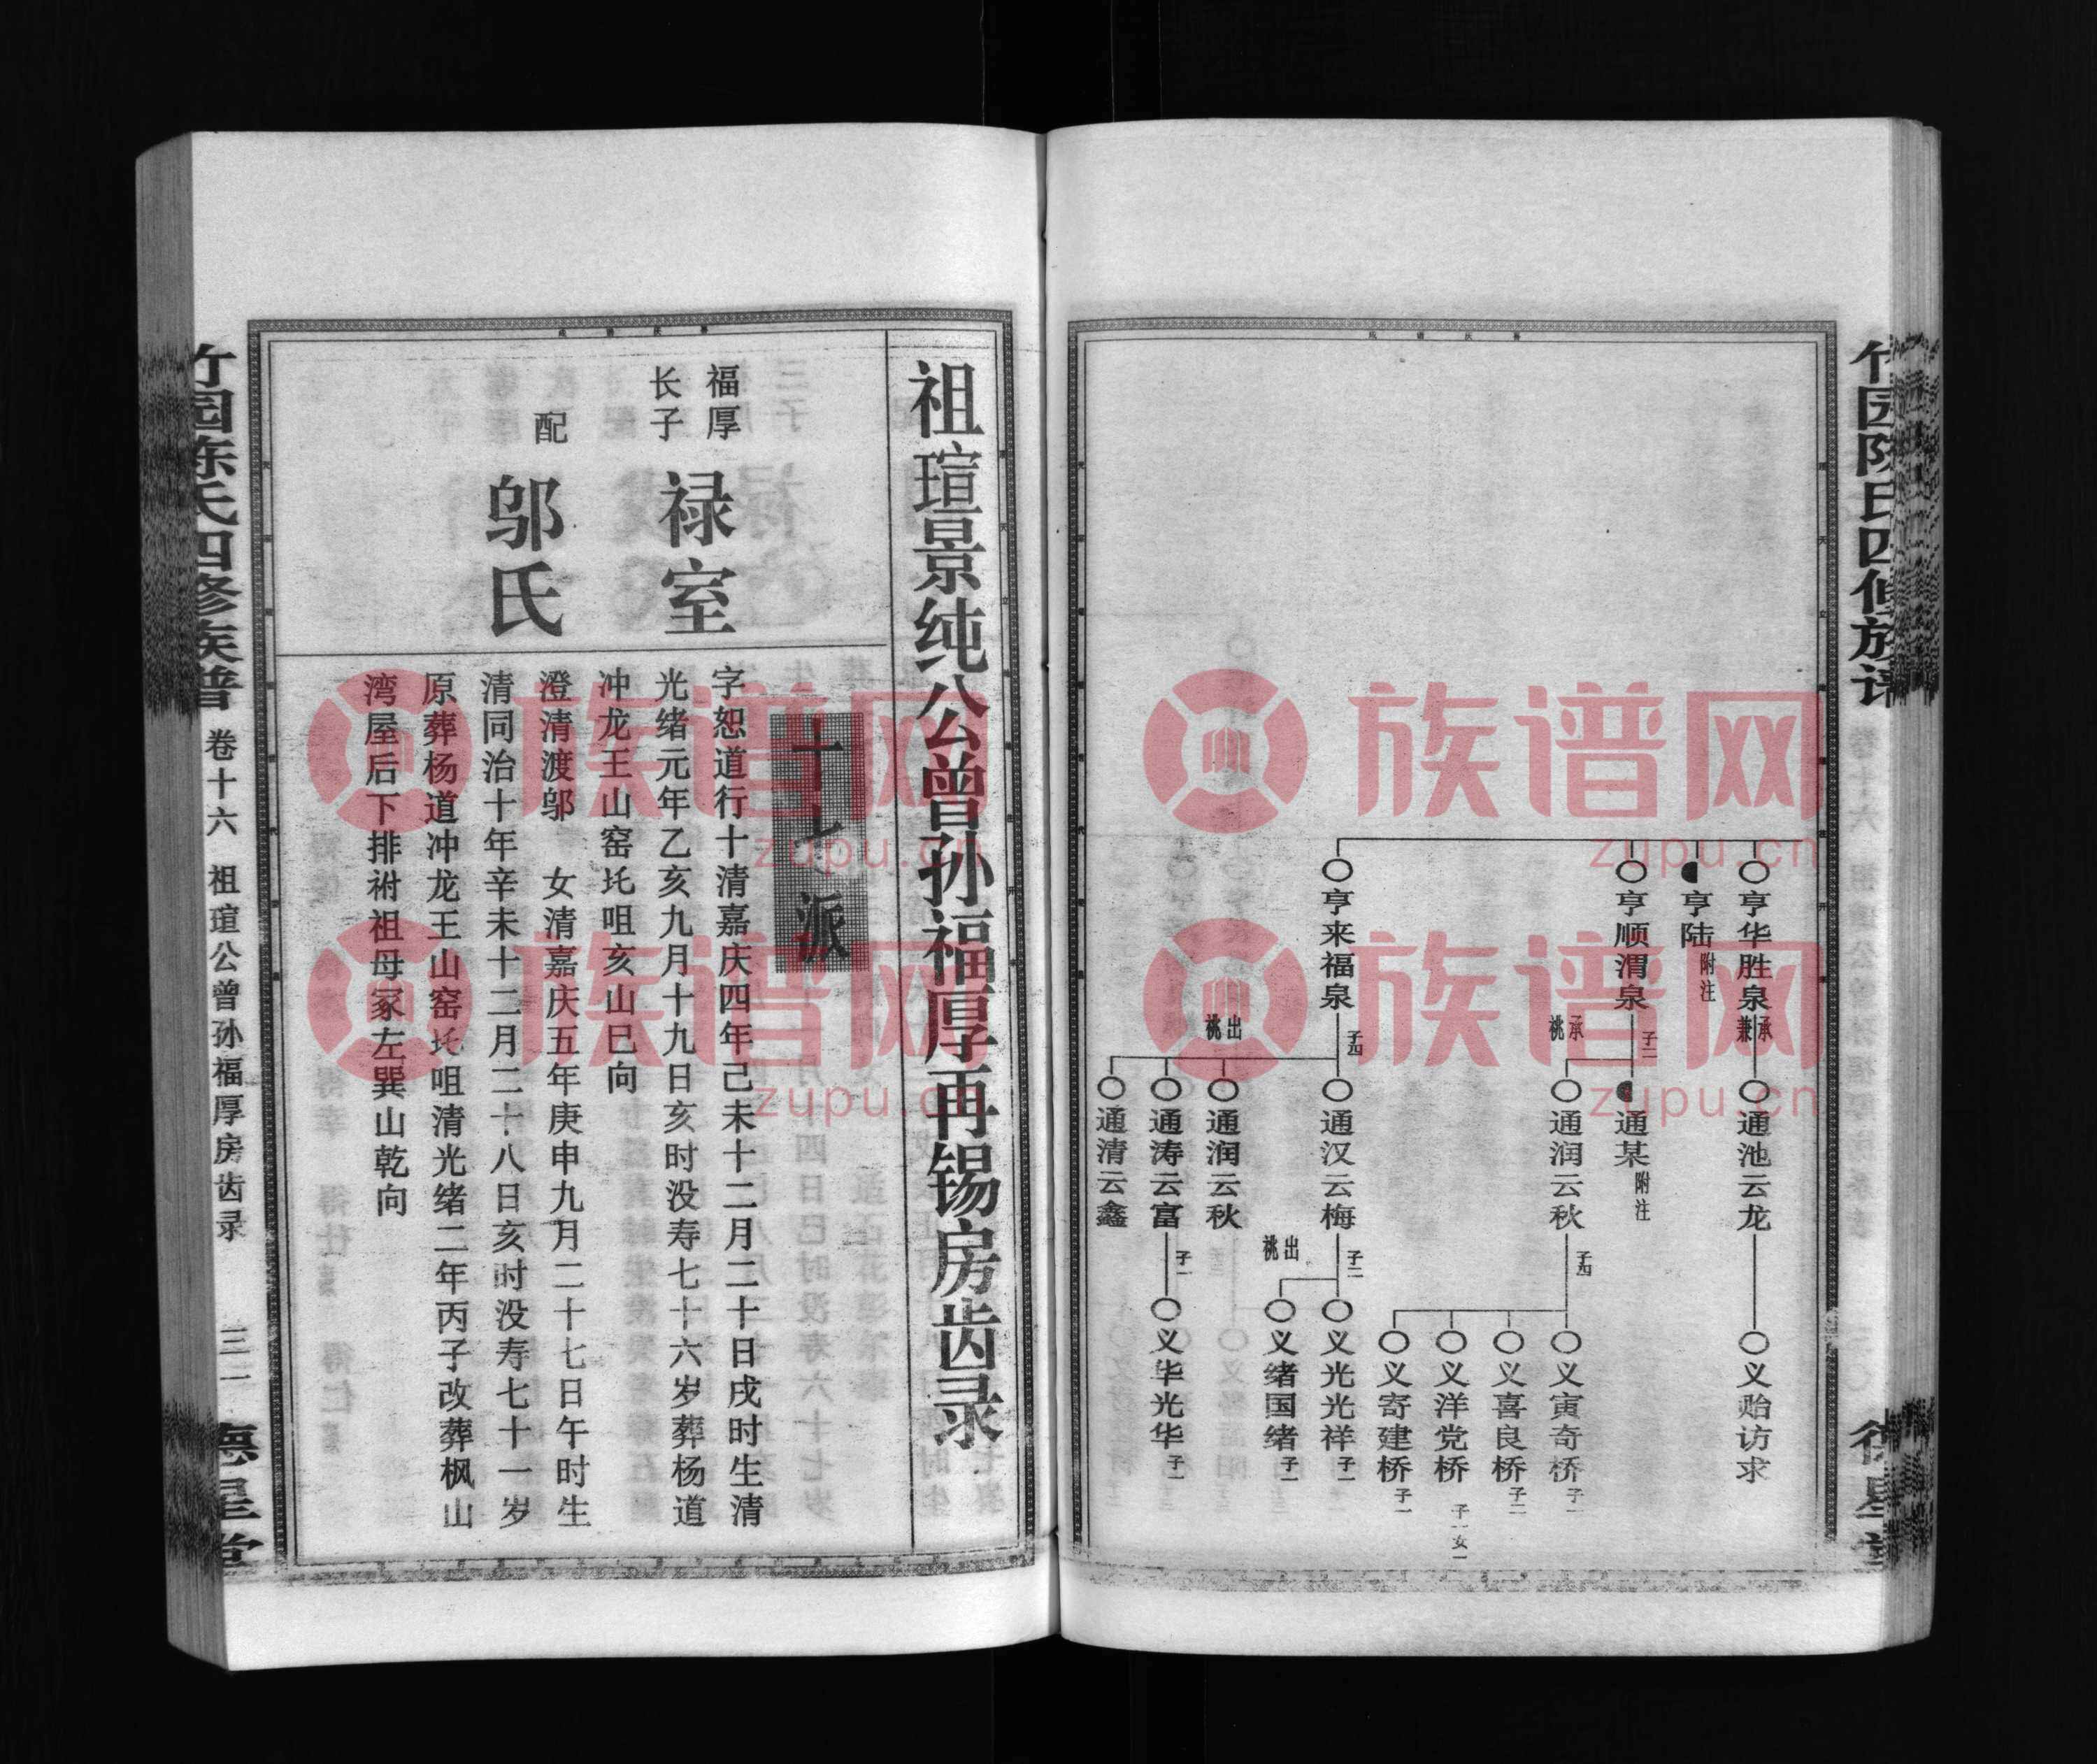 竹园陈氏四修族谱
亨华胜泉
承
兼
通池云龙
义贻访求
亨陆
附注
亨顺渭泉
子二
承
祧
通某
附注
通润云秋
子四
义寅奇桥
子一
义喜良桥
子二
义洋党桥
子一女一
义寄建桥
子一
亨来福泉
子四
通汉云梅
子二
义光光祥
子一
出
祧
义绪国绪
子一
出
祧
通润云秋
通涛云富
子一
义华光华
子一
通清云鑫
祖瑄景纯公曾孙福厚再锡房齿录
十七派
福厚
长子
禄室
字恕道行十清嘉庆四年己未十二月二十日戌时生清
光绪元年乙亥九月十九日亥时没寿七十六岁葬杨道
冲龙王山窑圫咀亥山巳向
配
邬氏
澄清渡邬 女清嘉庆五年庚申九月二十七日午时生
清同治十年辛未十二月二十八日亥时没寿七十一岁
原葬杨道冲龙王山窑圫咀清光绪二年丙子改葬枫山
湾屋后下排祔祖母冢左巽山乾向
竹园陈氏四修族谱
卷十六
祖瑄公曾孙福厚房齿录
三一
德星堂
族谱网
zupu.cn
族谱网
zupu.cn
族谱网
zupu.cn
族谱网
zupu.cn